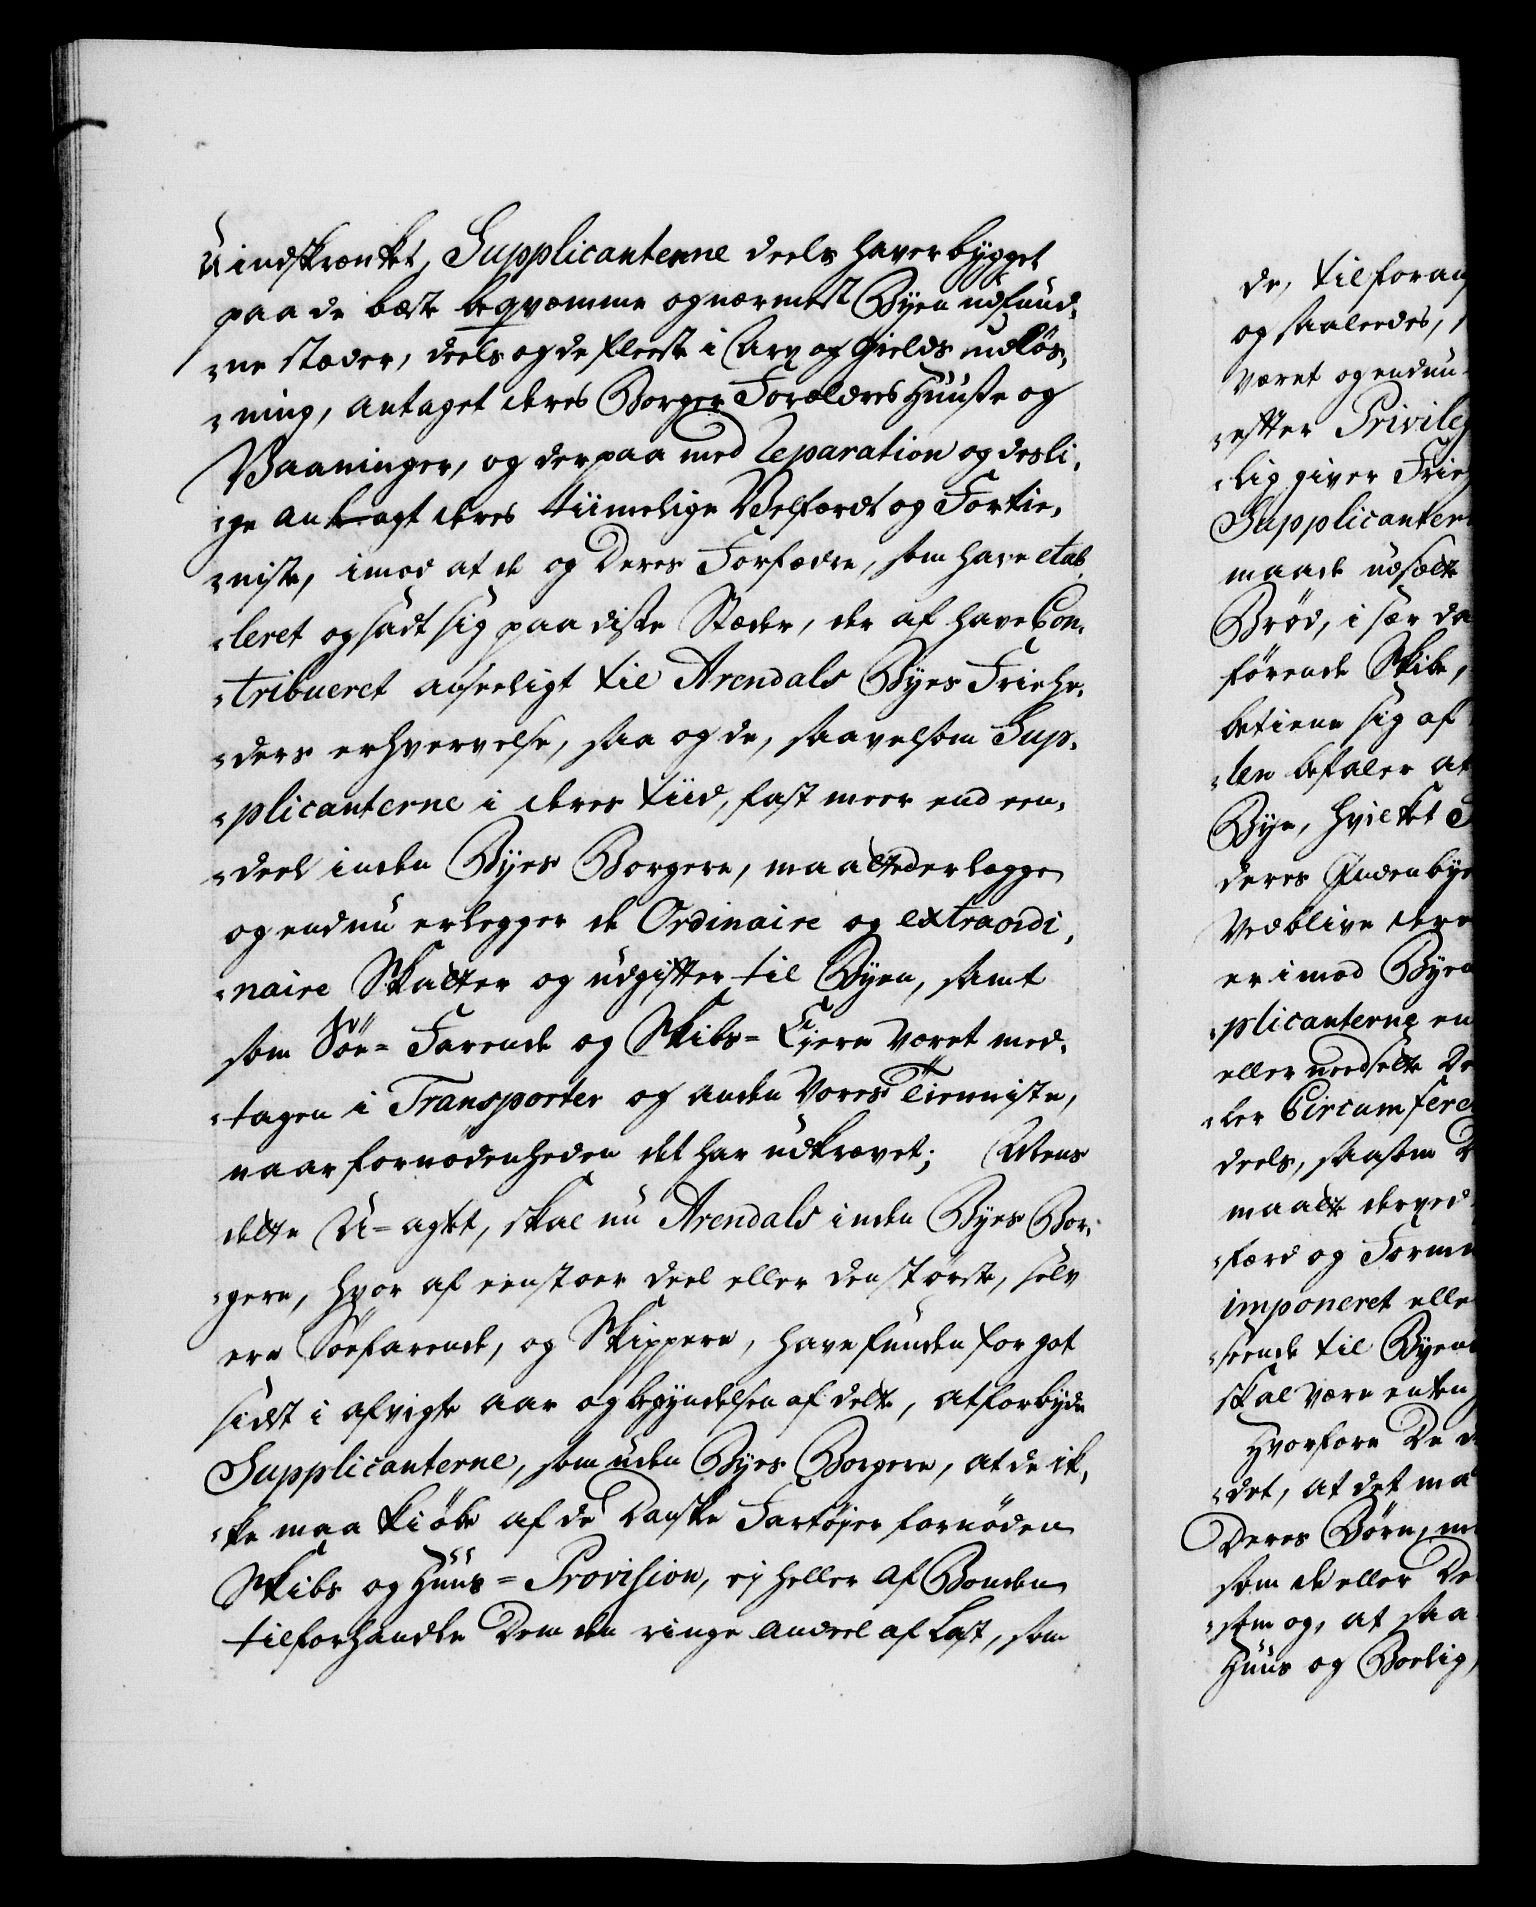 Uindskrænket, Supplicanterne deels haver bygget
paa de bæste beqvæmme og nærmest Byen udfund-
-ne stæder, deels og de fleeste i Arv og Gields udløs-
-ning, antaget deres Borger Forældres Huuse og
Vaaninger, og derpaa med Reparation og desli-
-ge anbragt deres tiimelige Velfærd og Fortie-
-niste, imod at de og Deres Forfædre, som have etab-
-leret og sadt sig paa disse Stæder, der af have Con-
-tribueret anseeligt til Arendals Byes Friehe-
-ders erhvervelse, saa og de, saavelsom Sup-
-plicanterne i deres tiid, fast meer end een-
-deel inden Byes Borgere, maatte erlægge
og endnu erlegger de Ordinaire og extraordi-
-naire Skatter og udgifter til Byen, samt
som Søe-Farende og Skibs-Eiere været med-
-tagen i Transporter og anden Vores Tienniste,
naar fornødenheden det har udkrævet; Alt
dette U-agtet, skal nu Arendals inden Byes Bor-
-gere, hvor af een stoer deel eller den største, selv
ere Søefarende, og Skippere, have funden for got
sidst i afvigte aar og begyndelsen af dette, at forbyde
Supplicanterne, som uden Byes Borgere, at de ik-
-ke maa kiøbe af de Danske Fartøjer fornøden
Skibs og Huus-Provision, ej heller af Bonden
tilforhandle Dem den ringe andeel af Last, som
de, tilforan
og saaledes,
været og endnu
-efter Privileg
-lig giver Frie
Supplicanter
maade udsætte
Brød, i sær da
førende Skibe,
betiene sig af
-len befaler at
Bye, hvilket S
deres Indenbye
Vedblive dere
er imod Byen
-plicanterne en
eller needsætte De
-ler Circumfere
deels, saasom D
maatte derved
-færd og Forme
imponeret elle
-seende til Byen
skal være enten
Hvorfore De
-det, at det ma
Deres Børn, m
som de eller De
-som og, at saa
Huus og Boelig,